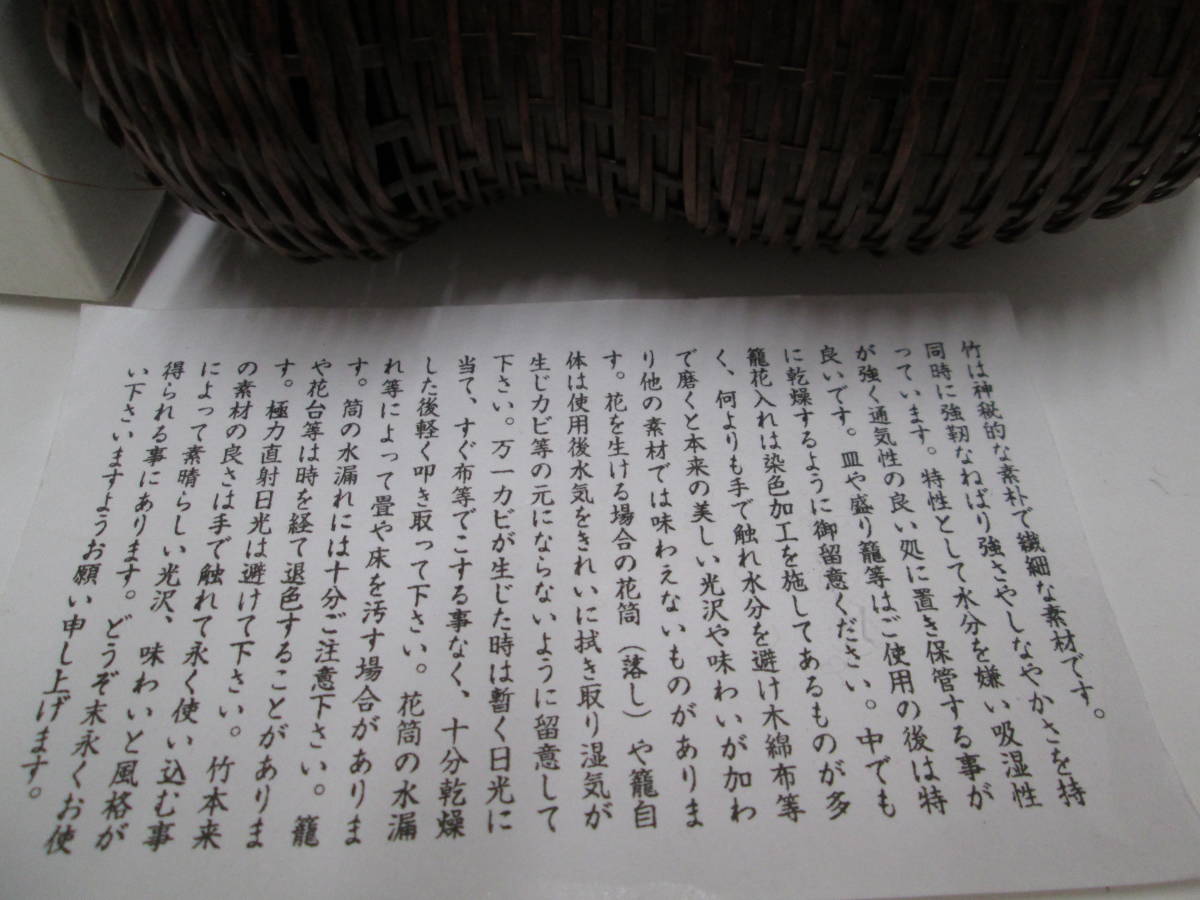 竹は神秘的な素朴で繊細な素材です。
同時に強靭なねばり強さやしなやかさを持
っています。特性として水分を嫌い吸湿性
が強く通気性の良い処に置き保管する事が
良いです。皿や盛り籠等はご使用の後は特
に乾燥するように御留意ください。中でも
籠花入れは染色加工を施してあるものが多
く、何よりも手で触れ水分を避け木綿布等
で磨くと本来の美しい光沢や味わいが加わ
り他の素材では味わえないものがありま
す。花を生ける場合の花筒（落し）や籠自
体は使用後水気をきれいに拭き取り湿気が
生じカビ等の元にならないように留意して
下さい。万一カビが生じた時は暫く日光に
当て、すぐ布等でこする事なく、十分乾燥
した後軽く叩き取って下さい。花筒の水漏
れ等によって畳や床を汚す場合がありま
す。筒の水漏れには十分ご注意下さい。籠
や花台等は時を経て退色することがありま
す。極力直射日光は避けて下さい。竹本来
の素材の良さは手で触れて永く使い込む事
によって素晴らしい光沢、味わいと風格が
得られる事にあります。どうぞ末永くお使
い下さいますようお願い申し上げます。